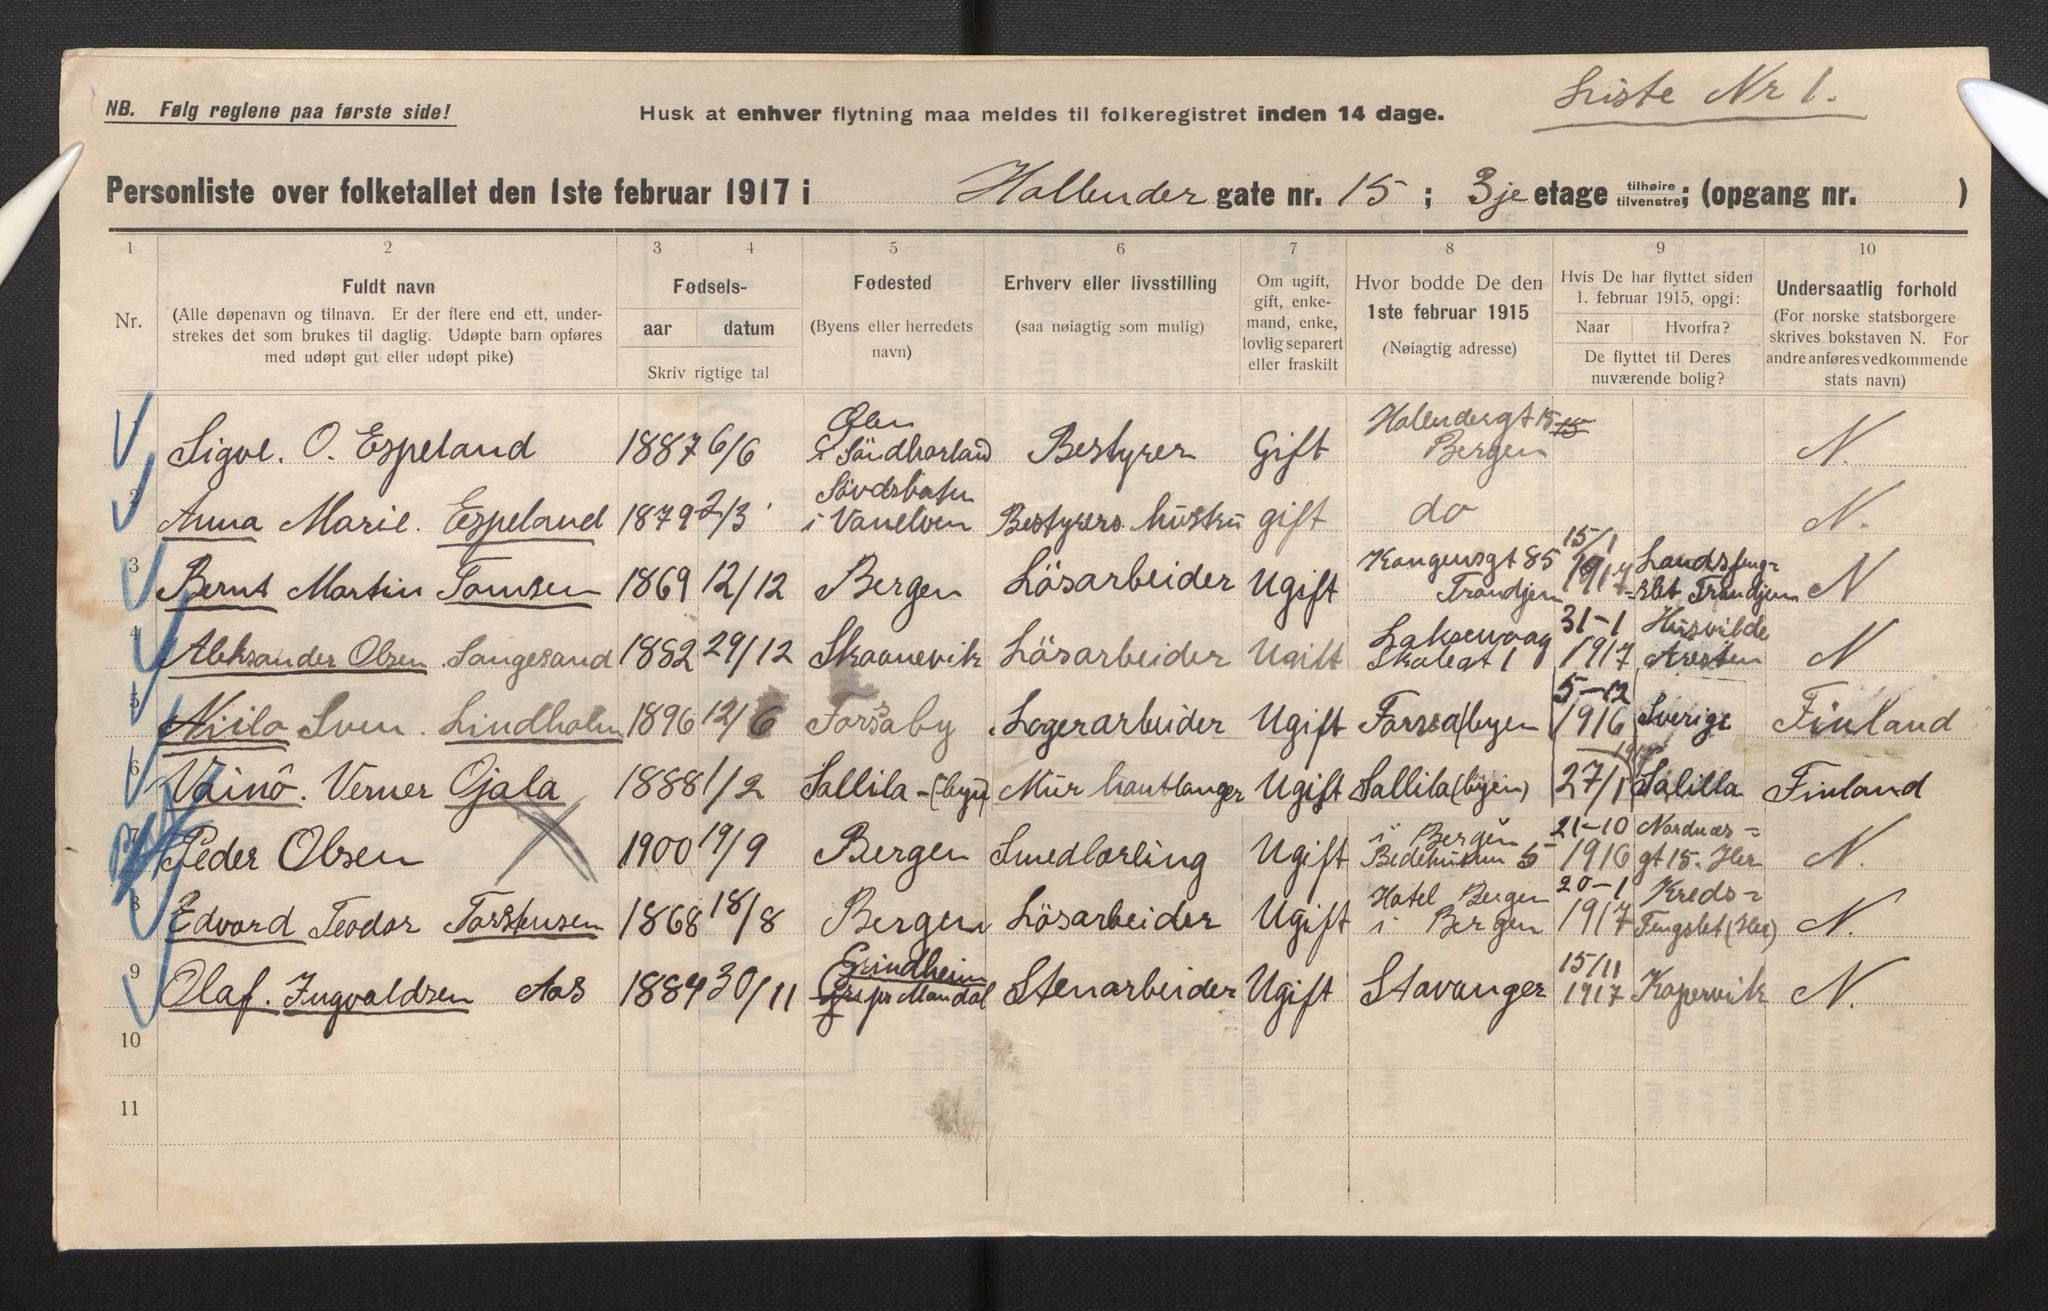 Liste Nr 1.
NB. Følg reglene paa første side!
Husk at enhver flytning maa meldes til folkeregistret inden 14 dage.
Personliste over folketallet den 1ste februar 1917 i Hollender gate nr. 15 ; 3je etage tilhøire tilvenstre; (opgang nr. )
1 2 3 4 5 6 7 8 9 10
Nr.
Fuldt navn
(Alle døpenavn og tilnavn. Er der flere end ett, under-
strekes det som brukes til daglig. Udøpte barn opføres
med udøpt gut eller udøpt pike)
Fødsels-
aar datum
Skriv rigtige tal
Fødested
(Byens eller herredets
navn)
Erhverv eller livsstilling
(saa nøiagtig som mulig)
Om ugift,
gift, enke-
mand, enke,
lovlig separert
eller fraskilt
Hvor bodde De den
1ste februar 1915
(Nøiagtig adresse)
Hvis De har flyttet siden
1. februar 1915, opgi:
Naar Hvorfra?
De flyttet til Deres
nuværende bolig?
Undersaatlig forhold
(For norske statsborgere
skrives bokstaven N. For
andre anføres vedkommende
stats navn)
Sigvl. O. Espeland 1887 6/6 Ølen i Söndhorland Bestyrer Gift Hollendergt 15 15 Bergen N.
2 Anna Marie. Espeland 1879 2/3 i Vanelven Bestyrers hustru gift do N.
3 Bernt Martin Tomsen 1869 12/12 Bergen Lösarbeider Ugift Kongensgt 85 Trondjem 15/1 1917 Landsfeng-slet Trondjem N
4 Aleksander Olsen Langesand 1882 29/12 Skaanevik Lösarbeider Ugift Laksevaag Skolegt 1 31-1 1917 Husvilde Aresten N
5 Niilo Sven. Lindholm 1896 12/6 Forsaby Lagerarbeider Ugift Forssa(byen 5-12 1916 Sverige Finland
6 Väinö. Verner Ojala 1888 1/2 Sallila-(byn) Mur hantlanger Ugift Sallila (byen) 27/1 1917 Salilla Finland
7 Peder Olsen 1900 19/9 Bergen Smedlærling Ugift i Bergen Bedehusun 5 21-10 1916 Nordnæs-gt 15. Her N.
8 Edvard Teodor Torstensen 1868 18/8 Bergen Lösarbeider Ugift Hotel Bergen i Bergen 20-1 1917 Kreds-Fengslet (Her) N.
9 Olaf. Ingvaldsen Aas 1884 30/11 Grindheim pr Mandal Stenarbeider Ugift Stavanger 15/11 1917 Kopervik N.
10
11